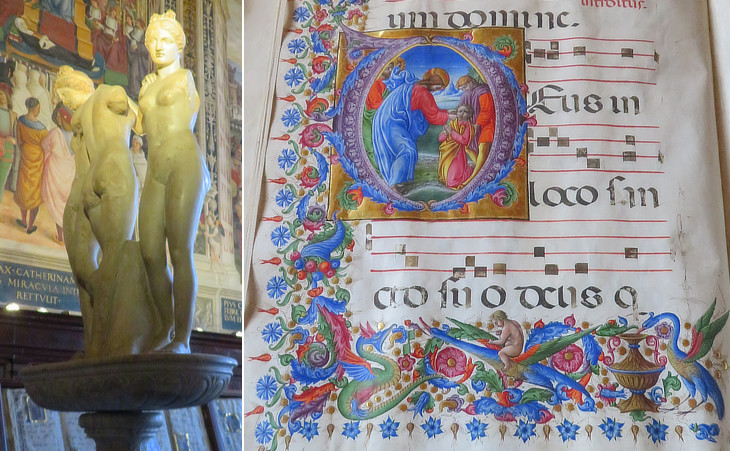 AX CATHERINAM
MIRACVLA INTE
RETTVLIT
PIVS
introitus
um domine.
Deus in
loco san
cto su o deus q